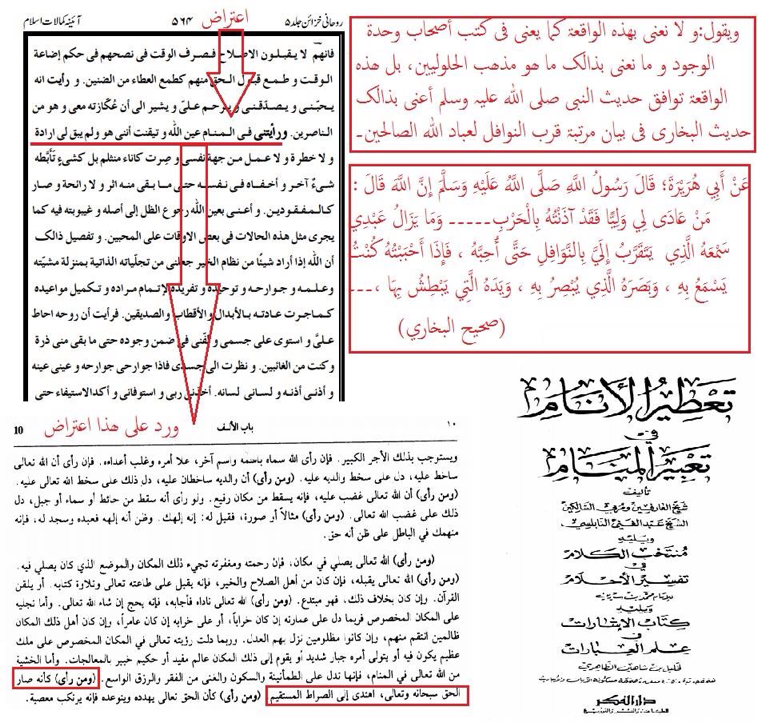 روحانی خزائن جلد ۵
۵۶۴
آئینہ کمالات اسلام
اعتراض
فانهم لا يقبلون الاصلاح فصرف الوقت فى نصحهم فى حكم اضاعة
الوقت و طمع قبول الحق منهم كطمع العطاء من الضنين. و رأيت انه
يحبّنى و يصدّقنى و يرحم علىّ و يشير الى أن عُكّازته معى و هو من
الناصرين. ورأيتنى فى المنام عين الله و تيقنت أننى هو ولم يبق لى ارادة
و لا خطرة و لا عمل من جهة نفسى و صرت كاناء منثلم بل كشىءٍ تأبّطه
شىءٌ آخر و أخفاه فى نفسه حتى ما بقى منه اثر و لا رائحة و صار
كالمفقودين. و أعنى بعين الله رجوع الظل إلى أصله و غيبوبته فيه كما
يجرى مثل هذه الحالات فى بعض الاوقات على المحبين. و تفصيل ذالك
أن الله إذا أراد شيئًا من نظام الخير جعلنى من تجلّياته الذاتية بمنزلة مشيّته
وعلمه و جوارحه و توحيده و تفريده لإتمام مراده و تكميل مواعيده
كما جرت عادته بالأبدال و الأقطاب و الصديقين. فرأيت أن روحه احاط
علىّ و استوى على جسمى و لفّنى فى ضمن وجوده حتى ما بقى منى ذرة
وكنت من الغائبين. و نظرت الى جسدى فاذا جوارحى جوارحه و عينى عينه
و أذنى أذنه و لسانى لسانه. أخذنى ربى و استوفانى و أكد الاستيفاء حتى
ويقول:و لا نعنى بهذه الواقعة كما يعنى فى كتب أصحاب وحدة
الوجود و ما نعنى بذالك ما هو مذهب الحلوليين، بل هذه
الواقعة توافق حديث النبى صلى الله عليه وسلم أعنى بذالك
حديث البخارى فى بيان مرتبة قرب النوافل لعباد الله الصالحين۔
عَنْ أَبِي هُرَيْرَةَ؛ قَالَ رَسُولُ اللَّهِ صَلَّى اللَّهُ عَلَيْهِ وَسَلَّمَ إِنَّ اللَّهَ قَالَ :
مَنْ عَادَى لِي وَلِيًّا فَقَدْ آذَنْتُهُ بِالْحَرْبِ۔۔۔۔۔ وَمَا يَزَالُ عَبْدِي
يَتَقَرَّبُ إِلَيَّ بِالنَّوَافِلِ حَتَّى أُحِبَّهُ ، فَإِذَا أَحْبَبْتُهُ كُنْتُ سَمْعَهُ الَّذِي
يَسْمَعُ بِهِ ، وَبَصَرَهُ الَّذِي يُبْصِرُ بِهِ ، وَيَدَهُ الَّتِي يَبْطِشُ بِهَا ،۔۔۔
(صحيح البخاري)
ورد على هذا اعتراض
١٠
باب الألف
10
ويستوجب بذلك الأجر الكبير. فإن رأى الله سماه باسمه واسم آخر، علا أمره وغلب أعداءه. وإن رأى أن الله تعالى
ساخط عليه، دل على سخط والديه عليه. (ومن رأى) أن والديه ساخطان عليه، دل ذلك على سخط الله تعالى عليه.
(ومن رأى) أن الله تعالى غضب عليه، فإنه يسقط من مكان رفيع. ولو رأى أنه سقط من حائط أو سماء أو جبل، دل
ذلك على غضب الله تعالى. (ومن رأى) مثالاً أو صورة، فقيل له: إنه إلهك. وظن أنه إلهه فعبده وسجد له، فإنه
منهمك في الباطل على ظن أنه حق.
(ومن رأى) الله تعالى يصلي في مكان، فإن رحمته ومغفرته تجيء ذلك المكان والموضع الذي كان يصلي فيه.
(ومن رأى) الله تعالى يقبله، فإن كان من أهل الصلاح والخير، فإنه يقبل على طاعته تعالى وتلاوة كتابه. أو يلقن
القرآن. وإن كان بخلاف ذلك، فهو مبتدع. (ومن رأى) الله تعالى ناداه فأجابه، فإنه يحج إن شاء الله تعالى. وأما تجليه
على المكان المخصوص فربما دل على عمارته إن كان خراباً، أو على خرابه إن كان عامراً، وإن كان أهل ذلك المكان
ظالمين انتقم منهم، وإن كانوا مظلومين نزل بهم العدل. وربما دلت رؤيته تعالى في المكان المخصوص على ملك
عظيم يكون فيه أو يتولى أمره جبار شديد أو يقوم إلى ذلك المكان عالم مفيد أو حكيم خبير بالمعالجات. وأما الخشية
من الله تعالى في المنام، فإنها تدل على الطمأنينة والسكون والغنى من الفقر والرزق الواسع. (ومن رأى) كأنه صار
الحق سبحانه وتعالى، اهتدى إلى الصراط المستقيم. (ومن رأى) كأن الحق تعالى يهدده ويتوعده فإنه يرتكب معصية.
تعطير الأنام
في
تعبير المنام
تأليف
شيخ العارفين ومربي السالكين
الشيخ عبد الغني النابلسي
ويليه
منتخب الكلام
في
تفسير الأحلام
للإمام محمد بن سيرين
ويليه
كتاب الإشارات
في
علم العبارات
خليل بن شاهين الظاهري
دار الفكر